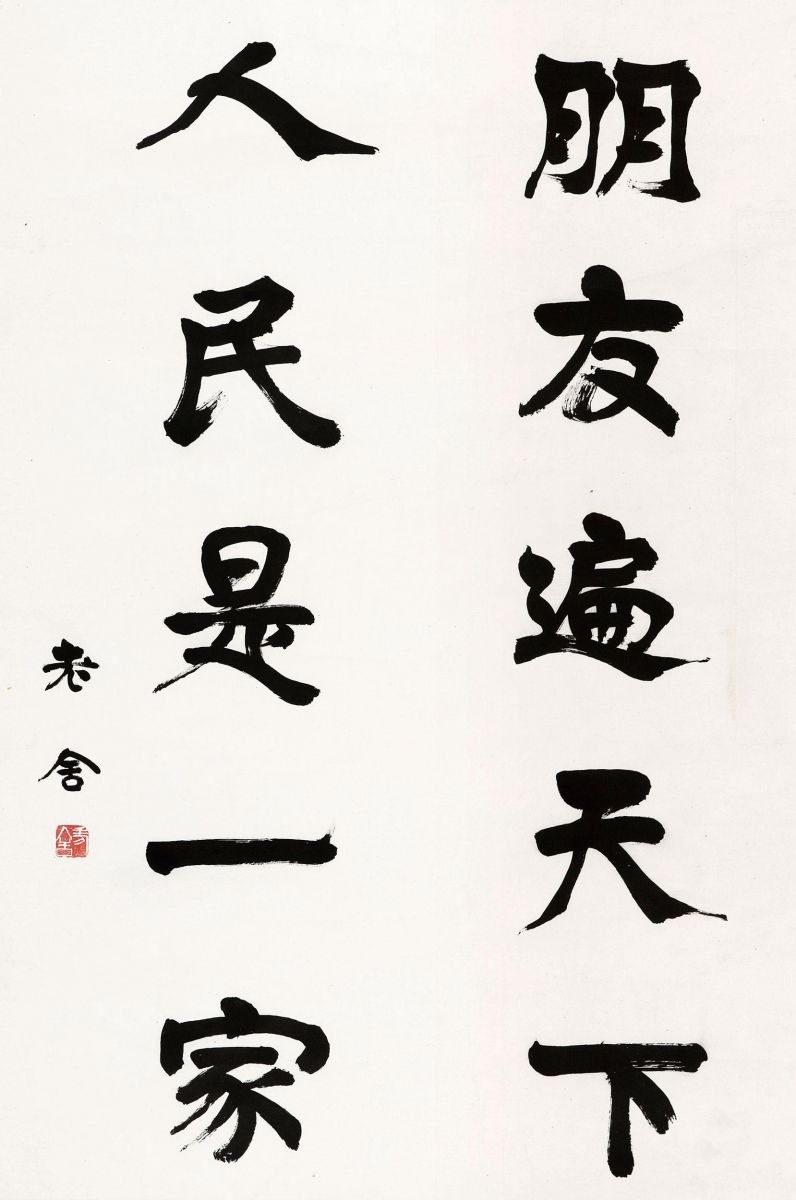 朋友遍天下
人民是一家
老舍
老舍